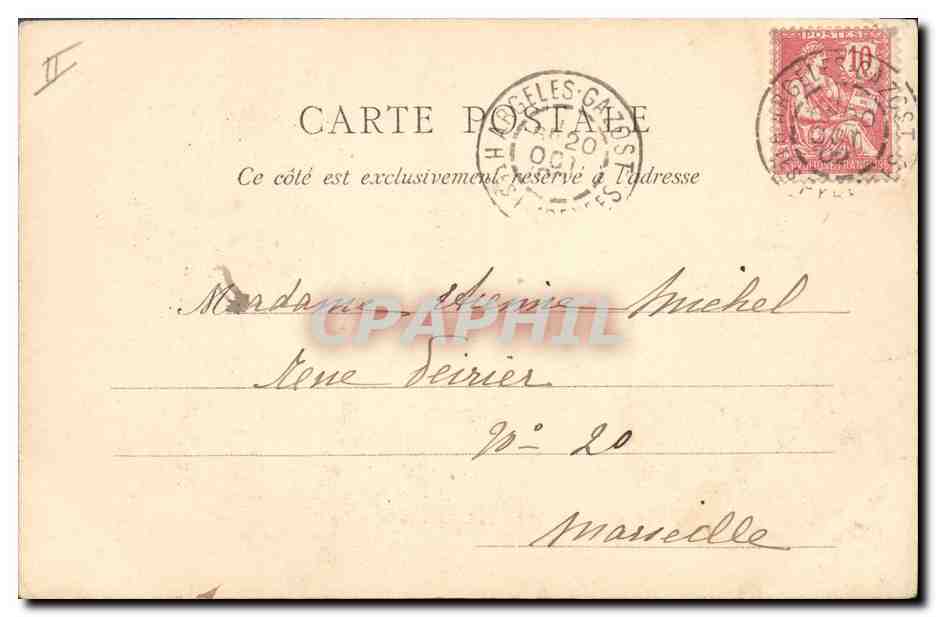 II
POSTES
10
CARTE POSTALE
HARGELES-GAZOST
20
OCT.
Ce côté est exclusivement réservé à l'adresse
Madame Etienne Michel
CPAPHIL
Rue
No 20
Marseille